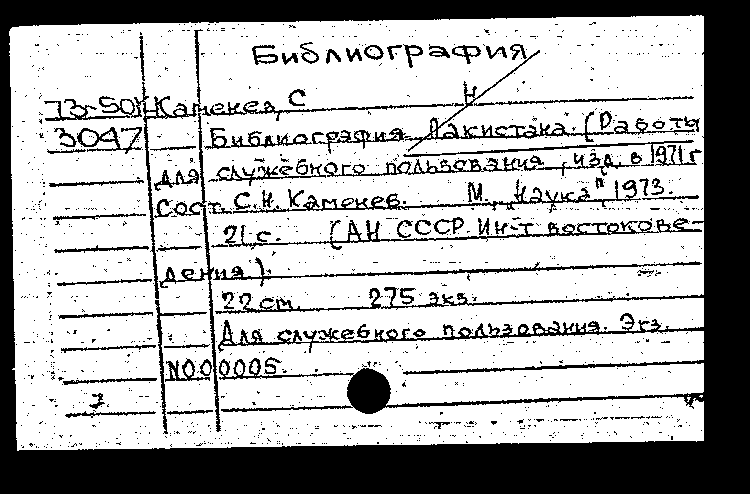 Библиография
73-50К Каменев, С Н
3047 Библиография Пакистана. (Работы
для служебного пользования, изд. в 1971 г
Сост. С.Н. Каменев. М., „Наука", 1973.
21 с. (АН СССР. Ин-т востокове-
дения).
22 см. 275 экз.
Для служебного пользования. Экз.
N000005.